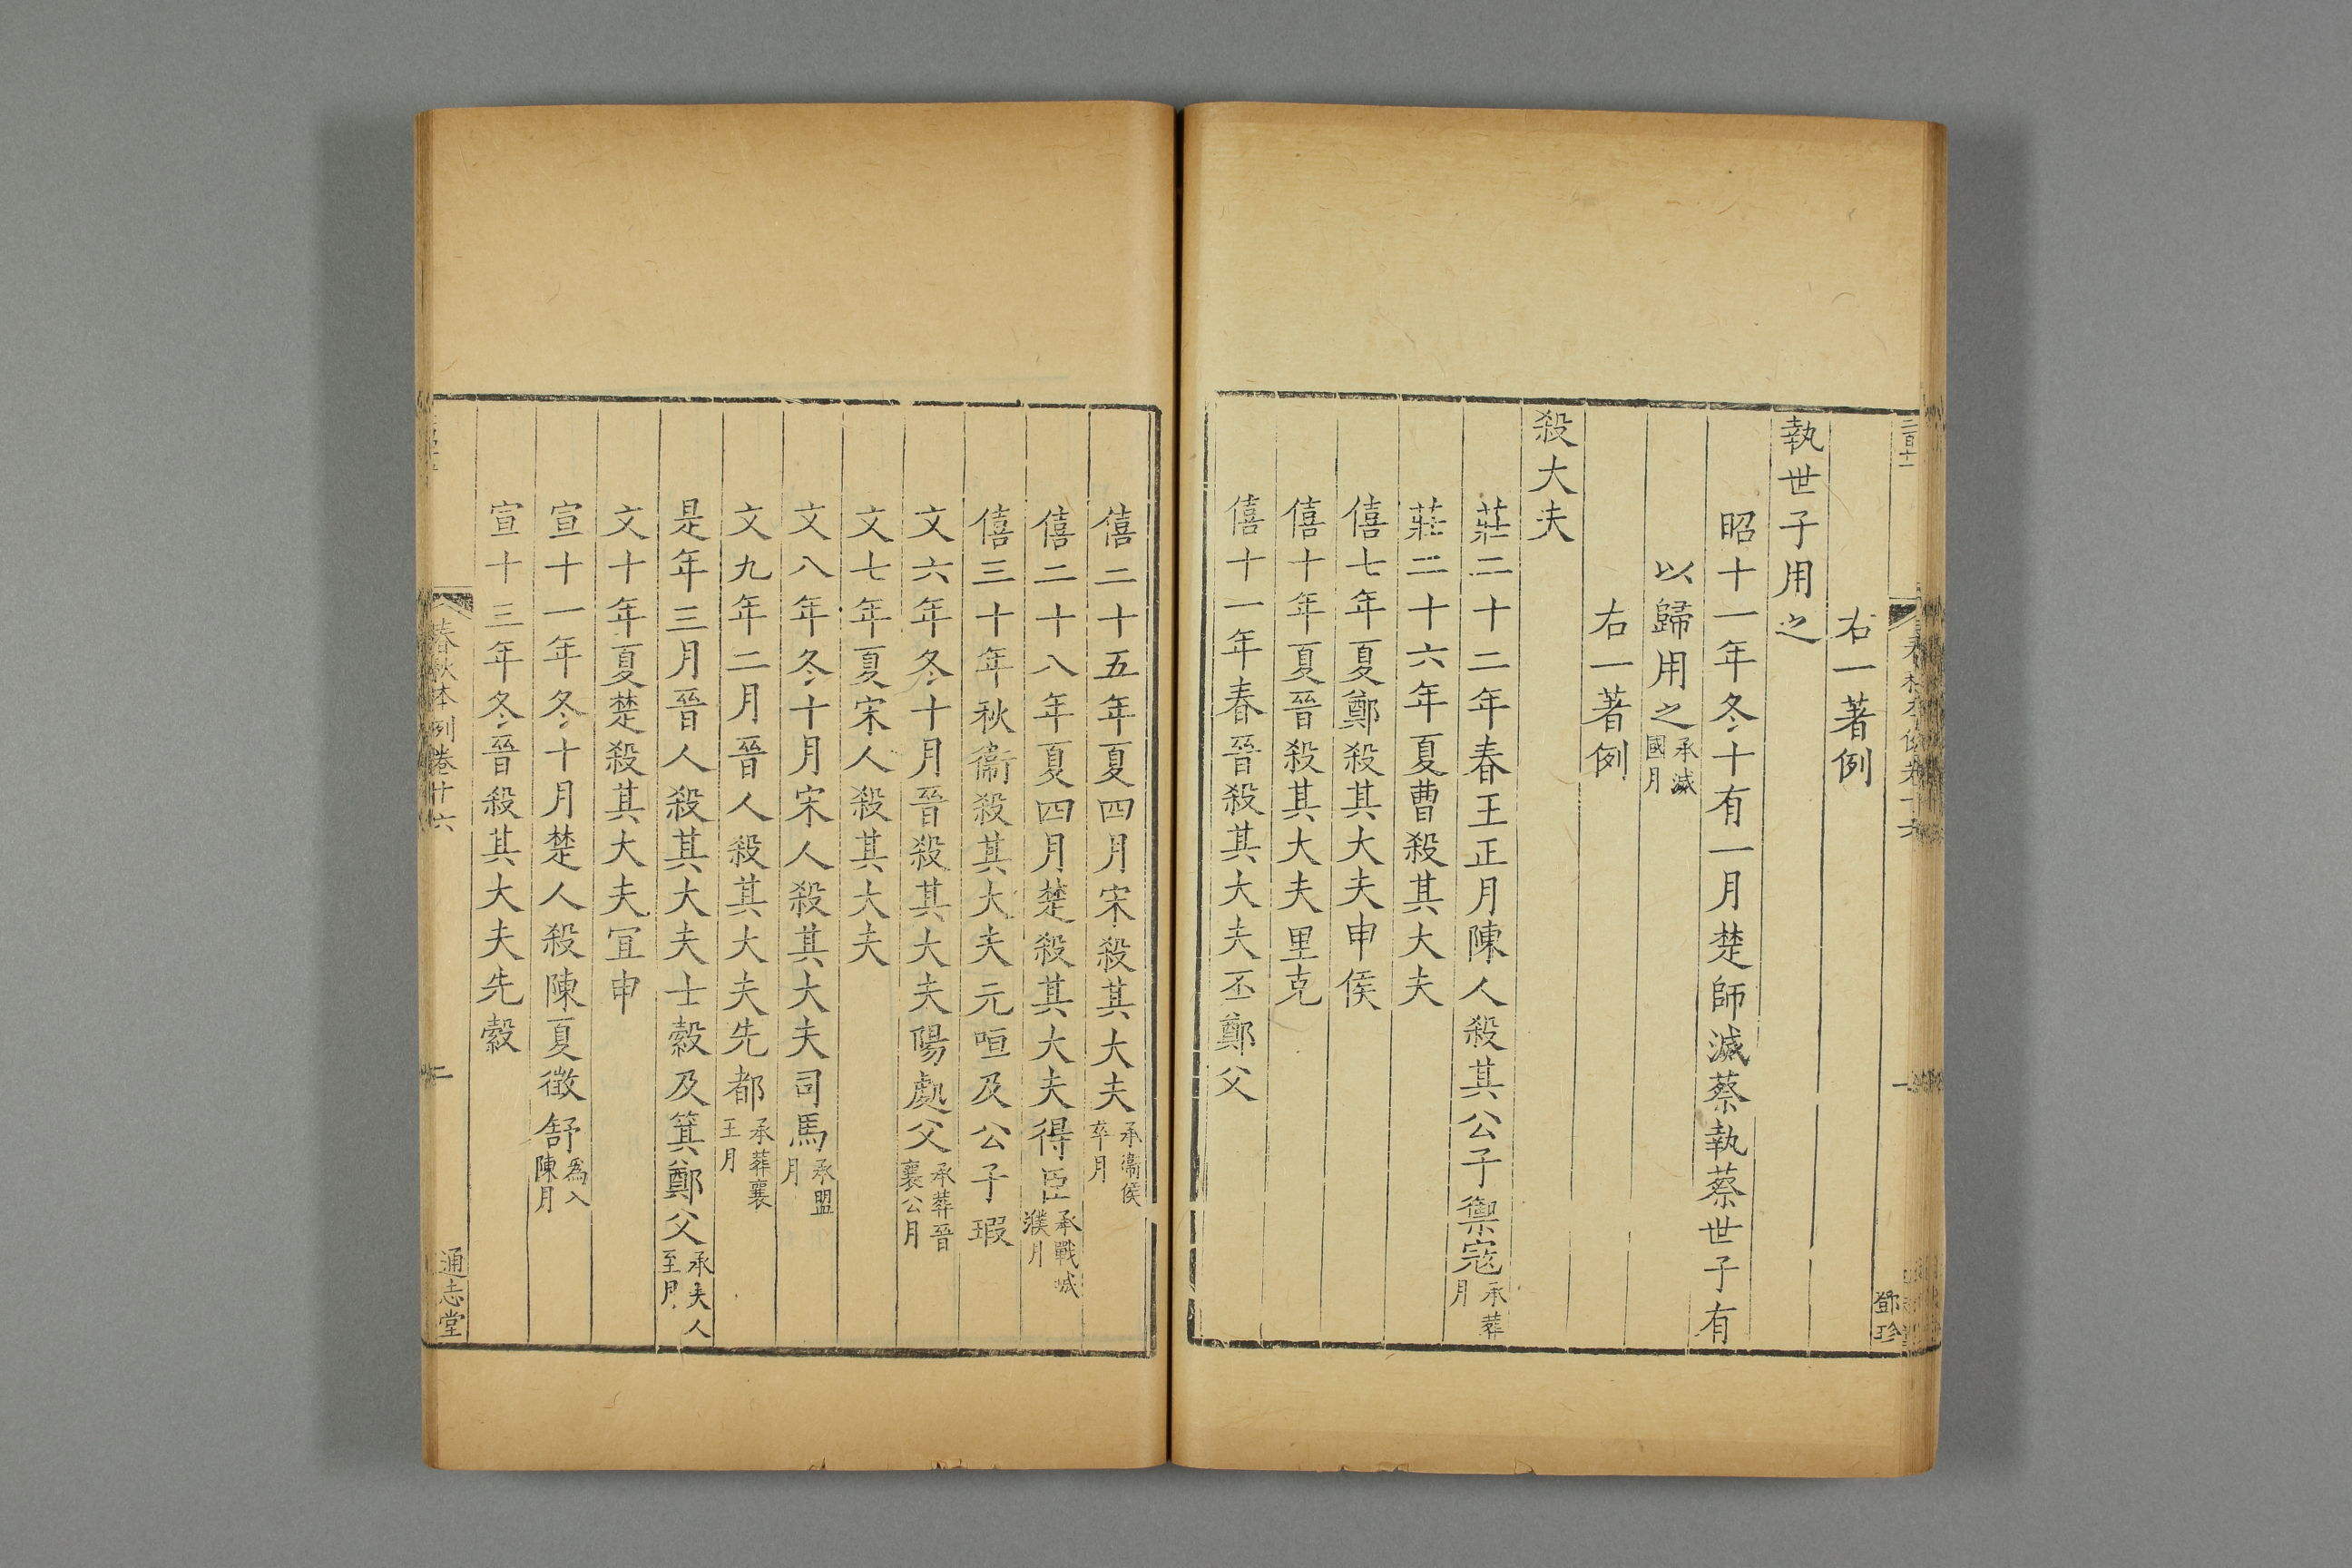 二百十一
鄧珍
右一著例
執世子用之
昭十一年冬十有一月楚師滅蔡執蔡世子有
以歸用之承滅國月
右一著例
殺大夫
莊二十二年春王正月陳人殺其公子禦寇承葬月
莊二十六年夏曹殺其大夫
僖七年夏鄭殺其大夫申侯
僖十年夏晉殺其大夫里克
僖十一年春晉殺其大夫丕鄭父
僖二十五年夏四月宋殺其大夫承衞侯卒月
僖二十八年夏四月楚殺其大夫得臣承戰城濮月
僖三十年秋衞殺其大夫元咺及公子瑕
文六年冬十月晉殺其大夫陽處父承葬晉襄公月
文七年夏宋人殺其大夫
文八年冬十月宋人殺其大夫司馬承盟月
文九年二月晉人殺其大夫先都承葬襄王月
是年三月晉人殺其大夫士縠及箕鄭父承夫人至月
文十年夏楚殺其大夫宜申
宣十一年冬十月楚人殺陳夏徵舒爲入陳月
宣十三年冬晉殺其大夫先縠
春秋本例卷十六
二
通志堂